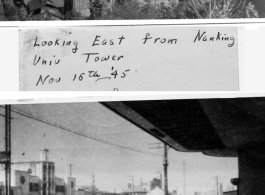 Looking East from Nanking
Univ Tower
Nov 16th '45